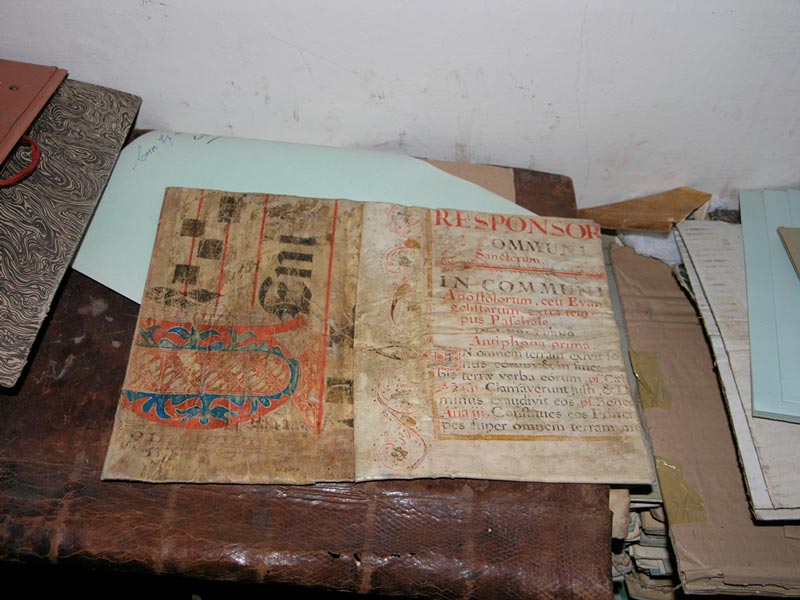 RESPONSOR
COMMUNI
Sanctorum.
IN COMMUNI
Apostolorum, ceu Evan
gelistarum, extra tem
pus Paschale.
Antiphona prima
IN omnem terram exivit so
nus eorum: et in fines or
bis terræ verba eorum. ps. Cæli
Clamaverunt justi, & Do
minus exaudivit eos. ps. Bened
Ana iii. Constitues eos Princi
pes super omnem terram